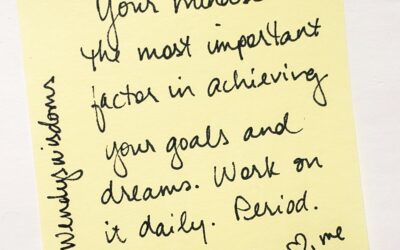 Your
the most important
factor in achieving
your goals and
dreams. Work on
it daily. Period.
♡, me
Wendyswisdoms